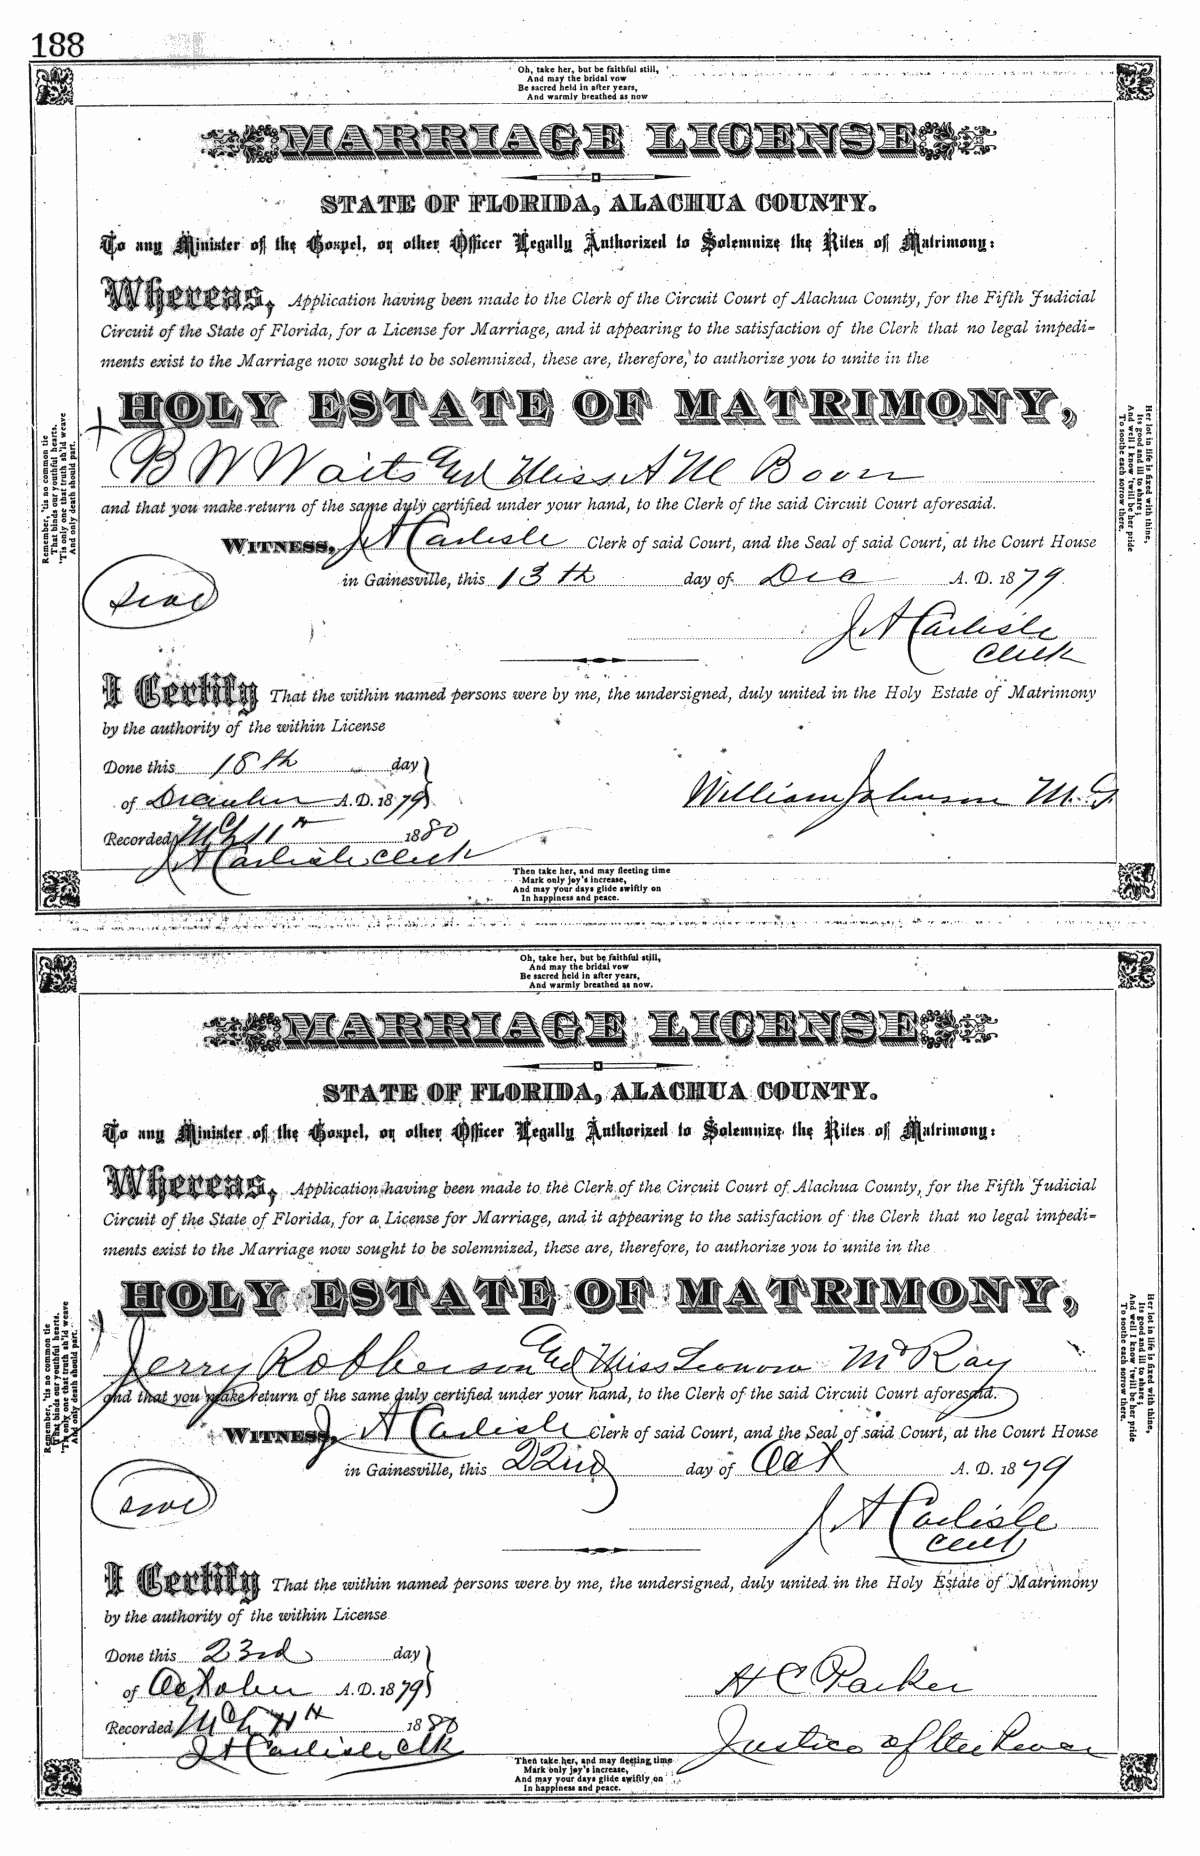 188
Oh, take her, but be faithful still,
And may the bridal vow
Be sacred held in after years,
And warmly breathed as now
MARRIAGE LICENSE
STATE OF FLORIDA, ALACHUA COUNTY.
To any Minister of the Gospel, or other Officer Legally Authorized to Solemnize the Rites of Matrimony:
Whereas, Application having been made to the Clerk of the Circuit Court of Alachua County, for the Fifth Judicial
Circuit of the State of Florida, for a License for Marriage, and it appearing to the satisfaction of the Clerk that no legal impedi-
ments exist to the Marriage now sought to be solemnized, these are, therefore, to authorize you to unite in the
HOLY ESTATE OF MATRIMONY,
B W Waits and Miss A M
and that you make return of the same duly certified under your hand, to the Clerk of the said Circuit Court aforesaid.
WITNESS, J A Carlisle Clerk of said Court, and the Seal of said Court, at the Court House
in Gainesville, this 13th day of Dec A. D. 1879
J A Carlisle
Clerk
I Certify That the within named persons were by me, the undersigned, duly united in the Holy Estate of Matrimony
by the authority of the within License
Done this 18th day
of December A. D. 1879
William Johnson M. G.
Recorded Mch 11th 1880
J A Carlisle Clerk
Remember, 'tis no common tie
That binds our youthful hearts.
'Tis only one that truth sh'ld weave
And only death should part.
Her lot in life is fixed with thine,
Its good and ill to share;
And well I know 'twill be her pride
To soothe each sorrow there.
Then take her, and may fleeting time
Mark only joy's increase,
And may your days glide swiftly on
In happiness and peace.
Oh, take her, but be faithful still,
And may the bridal vow
Be sacred held in after years,
And warmly breathed as now.
MARRIAGE LICENSE
STATE OF FLORIDA, ALACHUA COUNTY.
To any Minister of the Gospel, or other Officer Legally Authorized to Solemnize the Rites of Matrimony:
Whereas, Application having been made to the Clerk of the Circuit Court of Alachua County, for the Fifth Judicial
Circuit of the State of Florida, for a License for Marriage, and it appearing to the satisfaction of the Clerk that no legal impedi-
ments exist to the Marriage now sought to be solemnized, these are, therefore, to authorize you to unite in the
HOLY ESTATE OF MATRIMONY,
Jerry Robberson and Miss Leonora McRay
and that you make return of the same duly certified under your hand, to the Clerk of the said Circuit Court aforesaid.
WITNESS, J A Carlisle Clerk of said Court, and the Seal of said Court, at the Court House
in Gainesville, this 22nd day of Oct A. D. 1879
J A Carlisle
Clerk
I Certify That the within named persons were by me, the undersigned, duly united in the Holy Estate of Matrimony
by the authority of the within License
Done this 23rd day
of October A. D. 1879
H C Parker
Recorded Mch 11th 1880
Justice of the Peace
J A Carlisle Clk
Remember, 'tis no common tie
That binds our youthful hearts.
'Tis only one that truth sh'ld weave
And only death should part.
Her lot in life is fixed with thine,
Its good and ill to share;
And well I know 'twill be her pride
To soothe each sorrow there.
Then take her, and may fleeting time
Mark only joy's increase,
And may your days glide swiftly on
In happiness and peace.